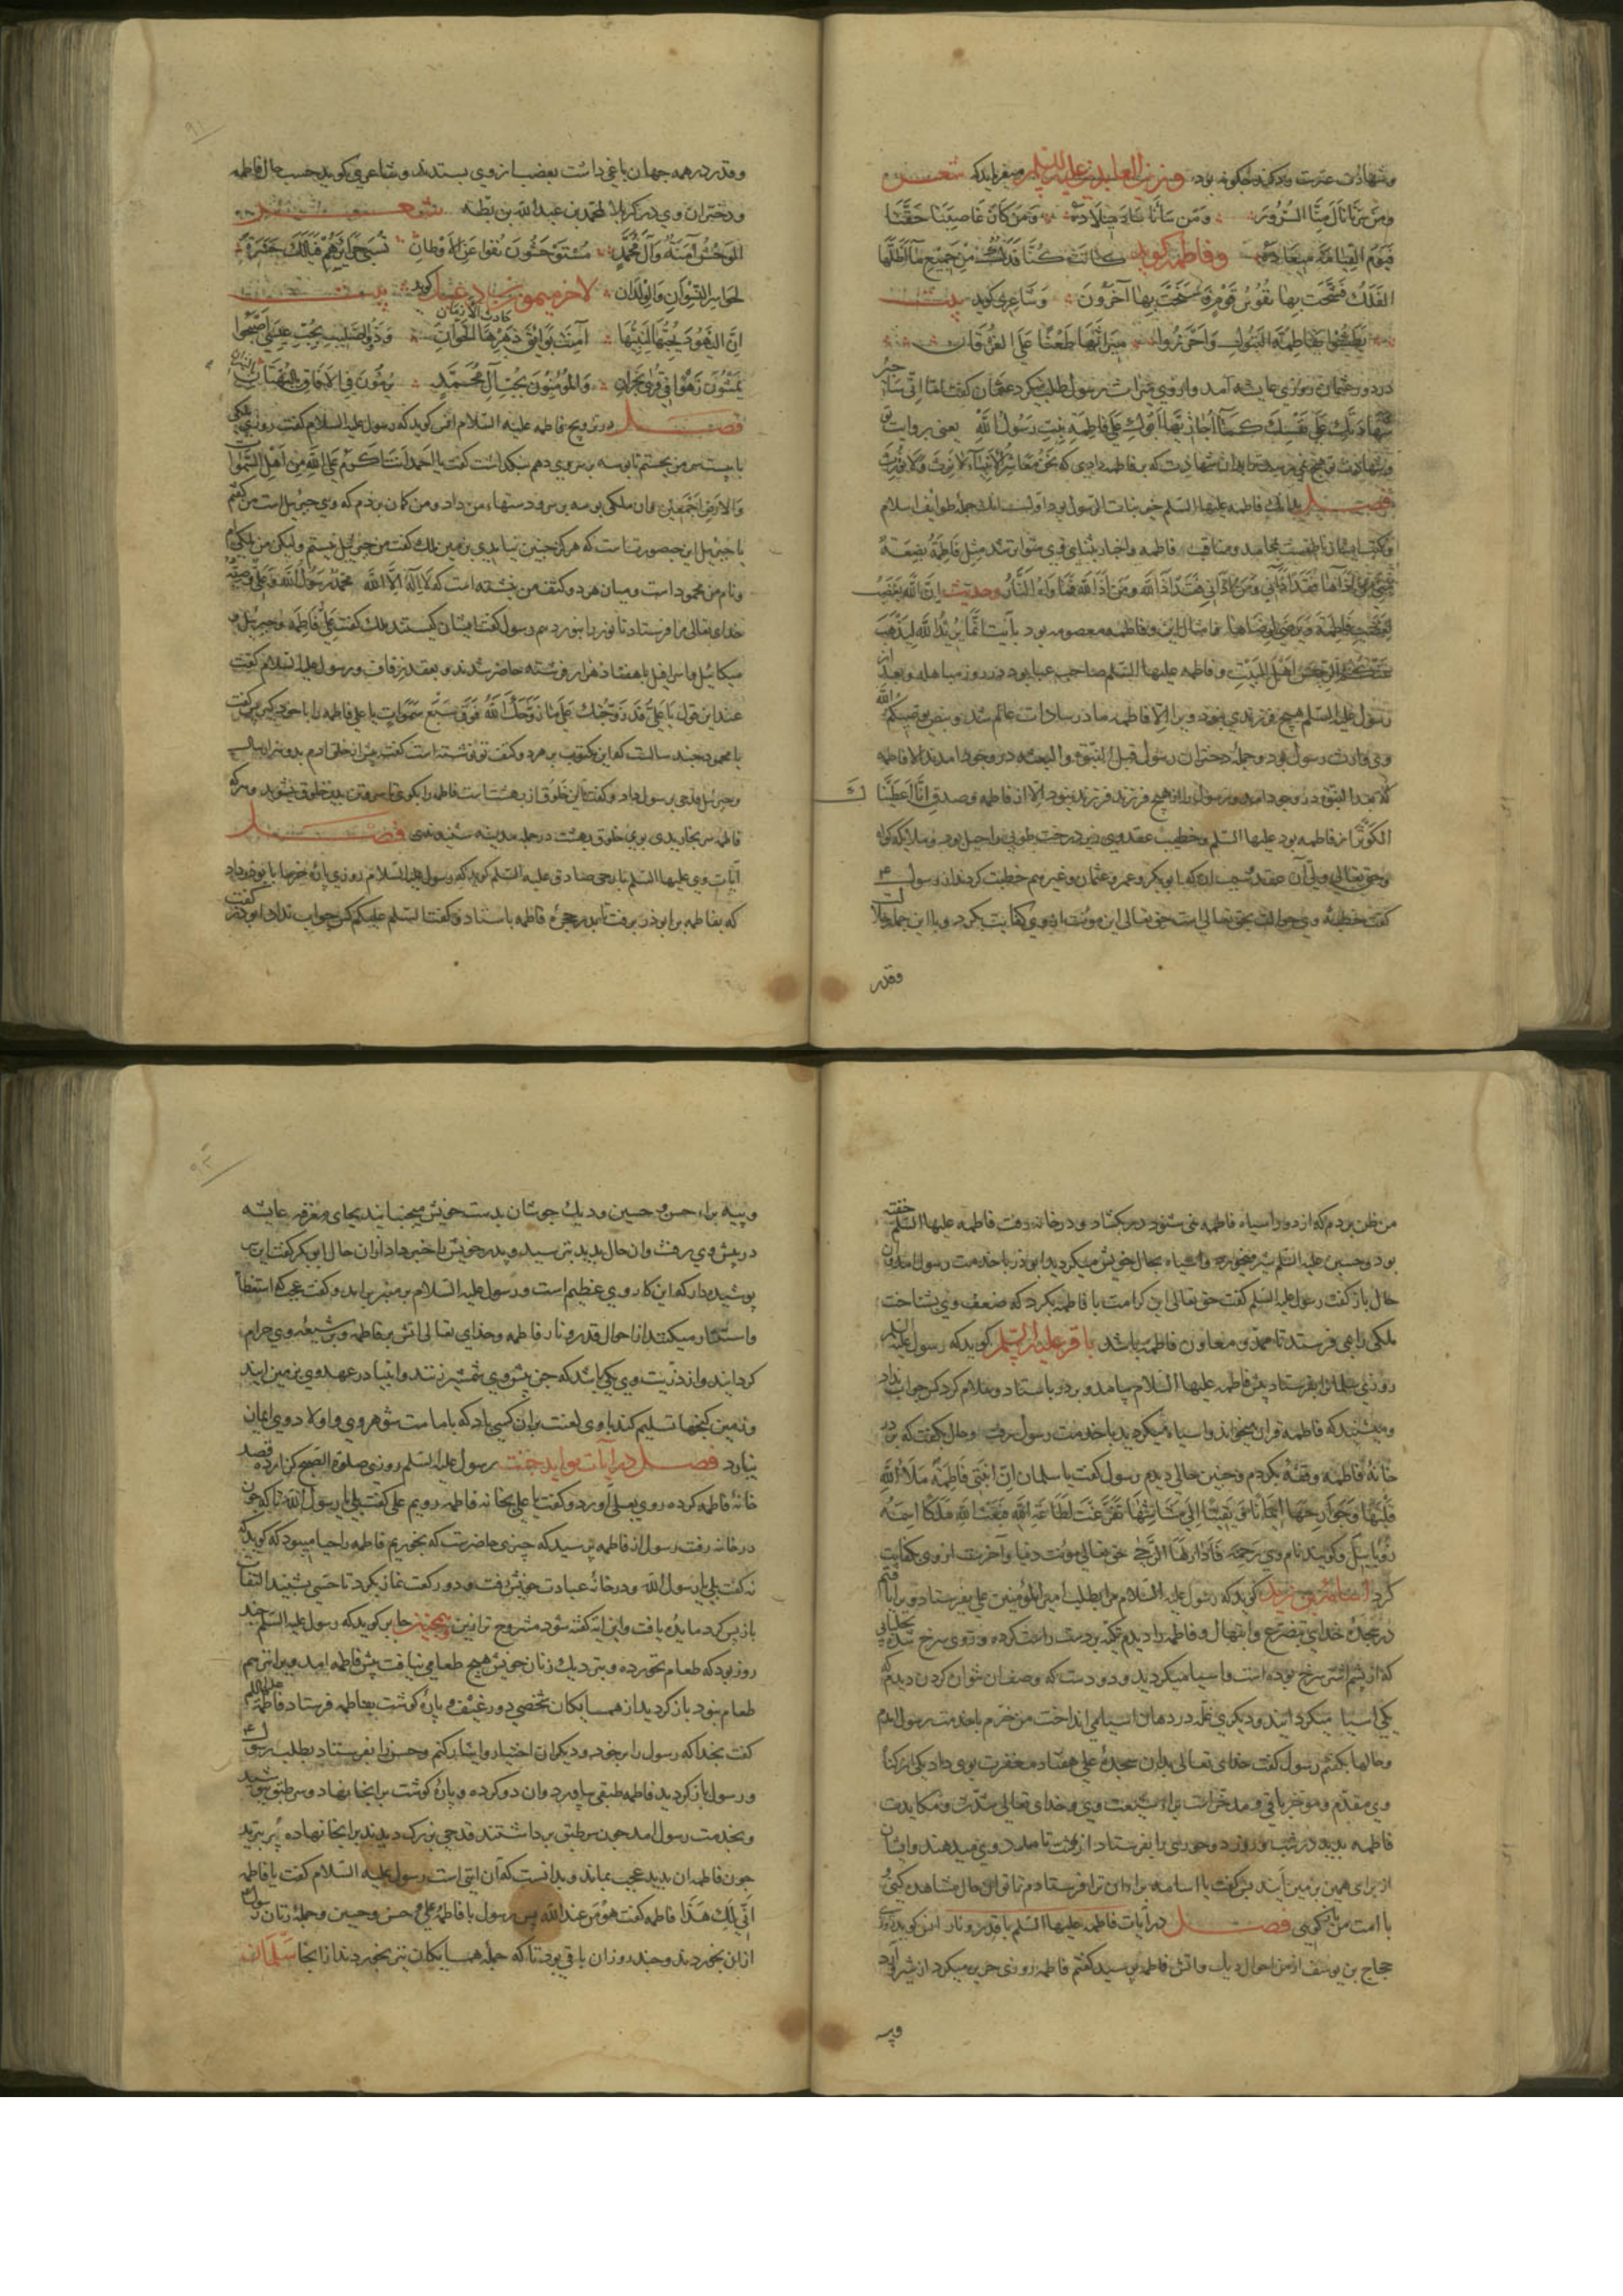 وشهادت عترت وذکر وی چکونه بود وزین العابدین علیه السلم میفرماید که شعر
ومن سرنا نال منا السرور ومن سأنا ساء میلاده ومن کان غاصبنا حقنا
فیوم القیامة میعاده وفاطمه کوید کانت لنا فدک من جمیع ما اظلها
الفلک فشحت بها نفوس قوم وسخت بها آخرون وشاعری کوید بیت
فاطمة البتول واحرزوا میراثها طعنا علی الفرقان
در دور عثمان روزی عایشه آمد واز وی میراث رسول طلب میکرد عثمان کفت
شهادتک علی نفسک کما اجاز بها ابوک علی فاطمة بنت رسول الله یعنی بروایت
که بر فاطمه دادی که نحن معاشر الانبیاء لا نرث ولا نورث
فصل بدانک فاطمه علیها السلم خیر بنات الرسول بود جمله طوایف اسلام
محامد ومناقب فاطمه واخبار مثل فاطمة بضعة
منی فقد آذانی ومن آذانی فقد آذی الله ومن آذی الله وحدیث ان الله یغضب
لغضب فاطمة ویرضی لرضاها وفاطمه معصومه بود بآیت انما یرید الله لیذهب
عنکم الرجس اهل البیت وفاطمه علیها السلم صاحب عبا بود در روز مباهله وبعد از
رسول علیه السلم هیچ فرزندی نبود ویرا الا فاطمه مادر سادات عالم شد وبنص یوصیکم الله
وی وارث رسول بود وجمله دختران رسول قبل النبوة والبعثه در وجود امدند الا فاطمه
که بعد النبوة در وجود امد ورسول را از هیچ فرزند فرزند نبود الا از فاطمه وصدق انا اعطیناک
الکوثر از فاطمه بود علیها السلم وخطیب عقد وی در زیر درخت طوبی راحیل بود وملایکه کواه
وحق تعالی ولی آن عقد ابوبکر وعمر وعثمان وغیرهم خطبت کردند از رسول
کفت خطبه وی حوالت بحق تعالی است حق تعالی این مونت از وی کفایت بکرد وبا این جمله
وقدر
وقدر در همه جهان باغی داشت بعضب از وی بستدند وشاعری کوید حسب حال فاطمه
ودختران وی در کربلا لمحمد بن عبد الله بن بطه شعر
الوحش آمنة وآل محمد مستوحشون نفوا عن الاوطان
لحواسر النسوان والولدان لاخر کوید بیت
ان الیهود بحبها لنبیها آمنت بوایق دهرها الخوان وذو الصلیب بحب عیسی اصبحوا
یمشون زهوا فی قری نجران والمؤمنون بحب آل محمد یرمون فی الافاق بالنیران
فصل در تزویج فاطمه علیه السلام انس کوید که رسول علیه السلام کفت روزی ملکی
با بیست سر من بجستم تا بوسه بر سر وی دهم نکذاشت کفت یا احمد انت اکرم علی الله من اهل السموات
والارض اجمعین وان ملکی بوسه بر سر ودستهاء من داد ومن کمان بردم که وی جبرئیل است من کفتم
یا جبرئیل این چه صورتست که هرکز چنین نیامدی بر من ملک کفت من جبرئیل نیستم ولیکن من ملکی ام
ونام من محمود است ومیان هر دو کتف من نبشته است که لا اله الا الله محمد رسول الله وعلی وصیه
خدای تعالی مرا فرستاد تا نور را بنور دهم رسول کفت ایشان کیستند ملک کفت علی فاطمه وجبرئیل و
میکائیل واسرافیل با هفتاد هزار فرشته حاضر شدند وبعقد زفاف ورسول علیه السلام کفت
عند این قول یا علی قد زوجتک علی ما زوجک الله فوق سبع سموات یا علی فاطمه را با خود کیر پس کفت
یا محمود چند سالست که این مکتوب بر هر دو کتف تو نوشته است کفت پیش از خلق ادم بدو هزار سال
وجبرئیل قدحی برسول داد وکفت این خلوق از بهشت است فاطمه را بکوی تا سر وتن بدین خلوق بشوید وهرکه
فاطمه سر بخاریدی بوی خلوق بهشت در جمله مدینه شنیدندی فصل
آیات وی علیها السلم تاریخی صادق علیه السلم کوید که رسول علیه السلام روزی پاره خرما با بوذر داد
که بفاطمه بر ابوذر برفت تا بدر حجره فاطمه باستاد وکفت السلم علیکم کس جواب نداد ابوذر کفت
من ظن بردم که از دور اسیاه فاطمه نمی شنود در بکشاد ودر خانه رفت فاطمه علیها السلم خفته
بود وحسین علیه السلم شیر میخورد واسیاه بحال خویش میکردید ابوذر با خدمت رسول امد وان
حال باز کفت رسول علیه السلم کفت حق تعالی این کرامت با فاطمه بکرد که ضعف وی بشناخت
ملکی را می فرستد تا ممد ومعاون فاطمه باشد باقر علیه السلم کوید که رسول علیه السلم
روزی سلمان را بفرستاد پیش فاطمه علیها السلام بیامد وبر در باستاد وسلام کرد کس جواب نداد
ومیشنید که فاطمه قران میخواند واسیاه میکردید با خدمت رسول رفت وحال بکفت که بر در
خانه فاطمه وقفه بکردم وچنین حالی دیدم رسول کفت یا سلمان ان ابنتی فاطمة ملأ الله
قلبها وجوارحها ایمانا ویقینا الی مشاشها تفرغت لطاعة الله فبعث الله ملکا اسمه
زوقابیل وکویند نام وی رحمه فادار لها الرحی حق تعالی مونت دنیا وآخرت از وی کفایت
کرد اسامه بن زید کوید که رسول علیه السلام مرا بطلب امیر المؤمنین علی بفرستاد ویرا یافتم
در سجده خدای بتضرع وابتهال وفاطمه را دیدم تکیه بر دست راست کرده وروی سرخ شده
که از پشم اشتر سرخ بوده است واسیا میکردید ودو دست که وصف ان نتوان کردن دیدم که
یکی اسیا میکردانید ودیکری غله در دهان اسیا می انداخت من خرم با خدمت رسول امدم
وحالها بکفتم رسول کفت خدای تعالی بدان سجده علی هفتاد مغفرت بوی داد یکی از کناه
وی مقدم وموخر باقی ومدخراست براء شیعت وی وخدای تعالی شدت ومکابدت
فاطمه بدید در شب وروز دو حوری را بفرستاد از بهشت تا مدد وی میدهند وایشان
از برای همین بر زمین آیند پس کفت یا اسامه برای ان ترا فرستادم تا تو این حال مشاهده کنی
با امت من باز کویی فصل در آیات فاطمه علیها السلم با قدر ونار انس کوید روزی
حجاج بن یوسف از من احوال دیک واتش فاطمه پرسید کفتم فاطمه روزی حریره میکرد از شیر وآرد
وپیه
وپیه براء حسن وحسین ودیک جوشان بدست خویش میجنبانید بجای مغرفه عایشه
در پیش وی رفت وان حال بدید بترسید وپدر خویش را خبر داد از ان حال ابو بکر کفت این سر
پوشیده دار که این کار وی عظیم است ورسول علیه السلام بر منبر براند وکفت عجب که استعظام
واستکثار میکنند از احوال قدر ونار فاطمه وخدای تعالی اتش بر فاطمه وبر شیعه وی حرام
کردانید واز ذریت وی یکی باشد که جن پیش وی شمشیر زنند وانبیا در عهد وی بر زمین ایند
وزمین کنجها تسلیم کند با وی لعنت بران کسی باد که با امامت شوهر وی واولاد وی ایمان
نیارد فصل در آیات مواید جنت رسول علیه السلم روزی صلوة الصبح کزارده قصد
خانه فاطمه کرده روی بعلی آورد وکفت یا علی بخانه فاطمه رویم علی کفت بلی یا رسول الله تا که چون
در خانه رفت رسول از فاطمه پرسید که چیزی حاضر هست که بخوریم فاطمه را حیا میبود که کوید که
نه کفت بلی یا رسول الله ودر خانه عبادت خویش رفت ودو رکعت نماز بکرد تا حسی بشنید التفات
باز پس کرد مایده یافت واین ایه کفته شود مشروح تر ازین وهمچنین جابر کوید که رسول علیه السلم چند
روز بود که طعام نخورده وبنزدیک زنان خویش هیچ طعامی نیافت پیش فاطمه امد ویرا نیز هم
طعام نبود باز کردید از همسایکان شخصی دو رغیف وپاره کوشت بفاطمه فرستاد فاطمه علیها السلم
کفت بخدا که رسول را بر خود ودیکران اختیار وایثار کنم وحسن را بفرستاد بطلب رسول
ورسول باز کردید فاطمه طبقی بیاورد وان دو کرده وپاره کوشت برانجا نهاد وسر طبق بپوشید
وبخدمت رسول امد چون سر طبق برداشتند قدحی بزرک دیدند برانجا نهاده پر ثرید
چون فاطمه ان بدید عجب بماند وبدانست که آن ایتی است رسول علیه السلام کفت یا فاطمه
انی لک هذا فاطمه کفت هو من عند الله پس رسول با فاطمه علی وحسن وحسین وجمله زنان رسول
ازان بخوردند وچند روز ان باقی بود تا که جمله همسایکان نیز بخوردند از انجا سلمان